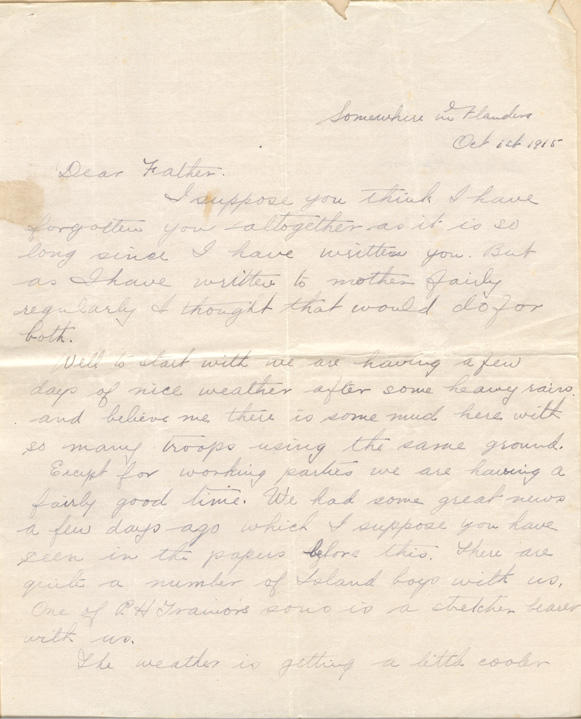 Somewhere in Flanders
Oct 1st 1915
Dear Father.
I suppose you think I have
forgotten you altogether as it is so
long since I have written you. But
as I have written to mother fairly
regularly I thought that would do for
both.
Well to start with we are having a few
days of nice weather after some heavy rains
and believe me there is some mud here with
so many troops using the same ground.
Except for working parties we are having a
fairly good time. We had some great news
a few days ago which I suppose you have
seen in the papers before this. There are
quite a number of Island boys with us.
One of P.H Trainors sons is a stretcher bearer
with us.
The weather is getting a little cooler